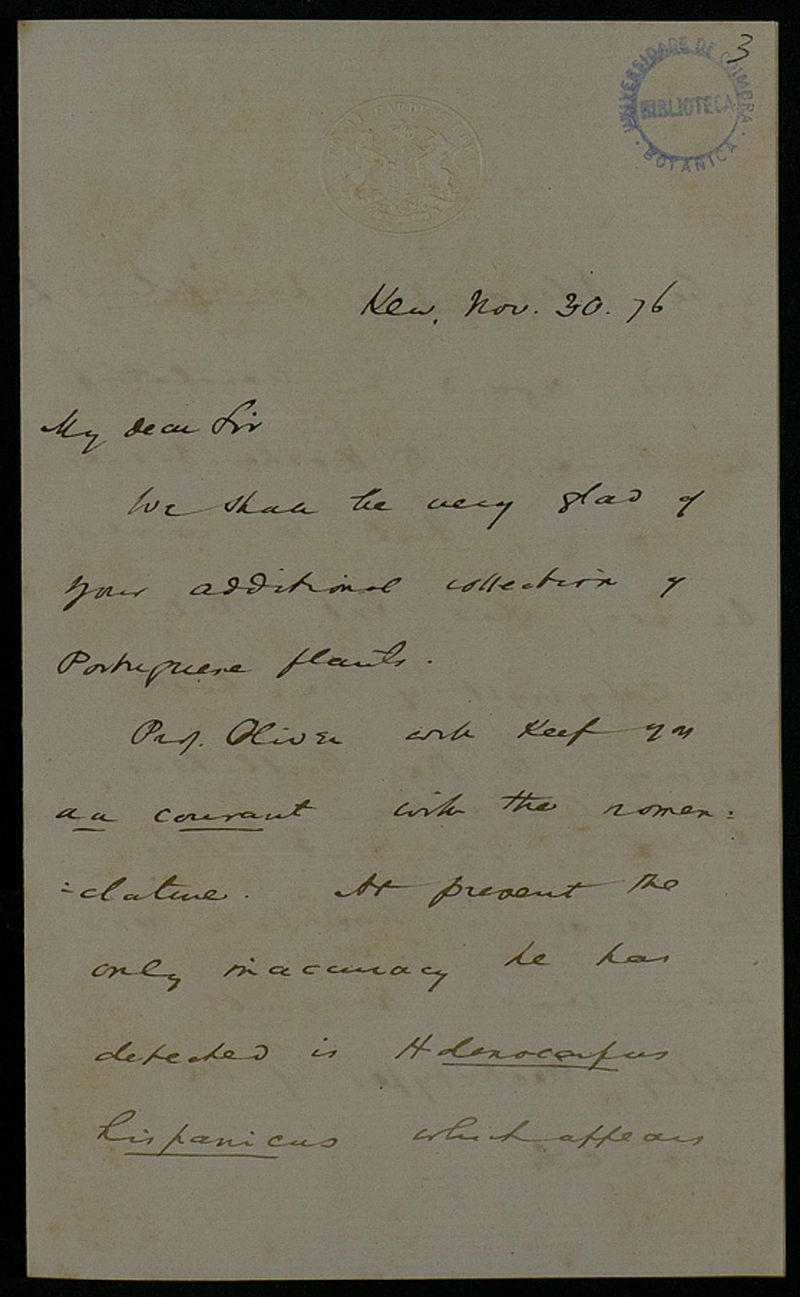 3
UNIVERSIDADE DE COIMBRA
BIBLIOTECA
BOTANICA
Kew, Nov. 30. 76
My dear Sir
We shall be very glad of
your additional collection of
Portuguese plants.
Prof. Oliver will keep you
au courant with the nomen:
:clature. At present the
only inaccuracy he has
detected is Adenocarpus
hispanicus which appears